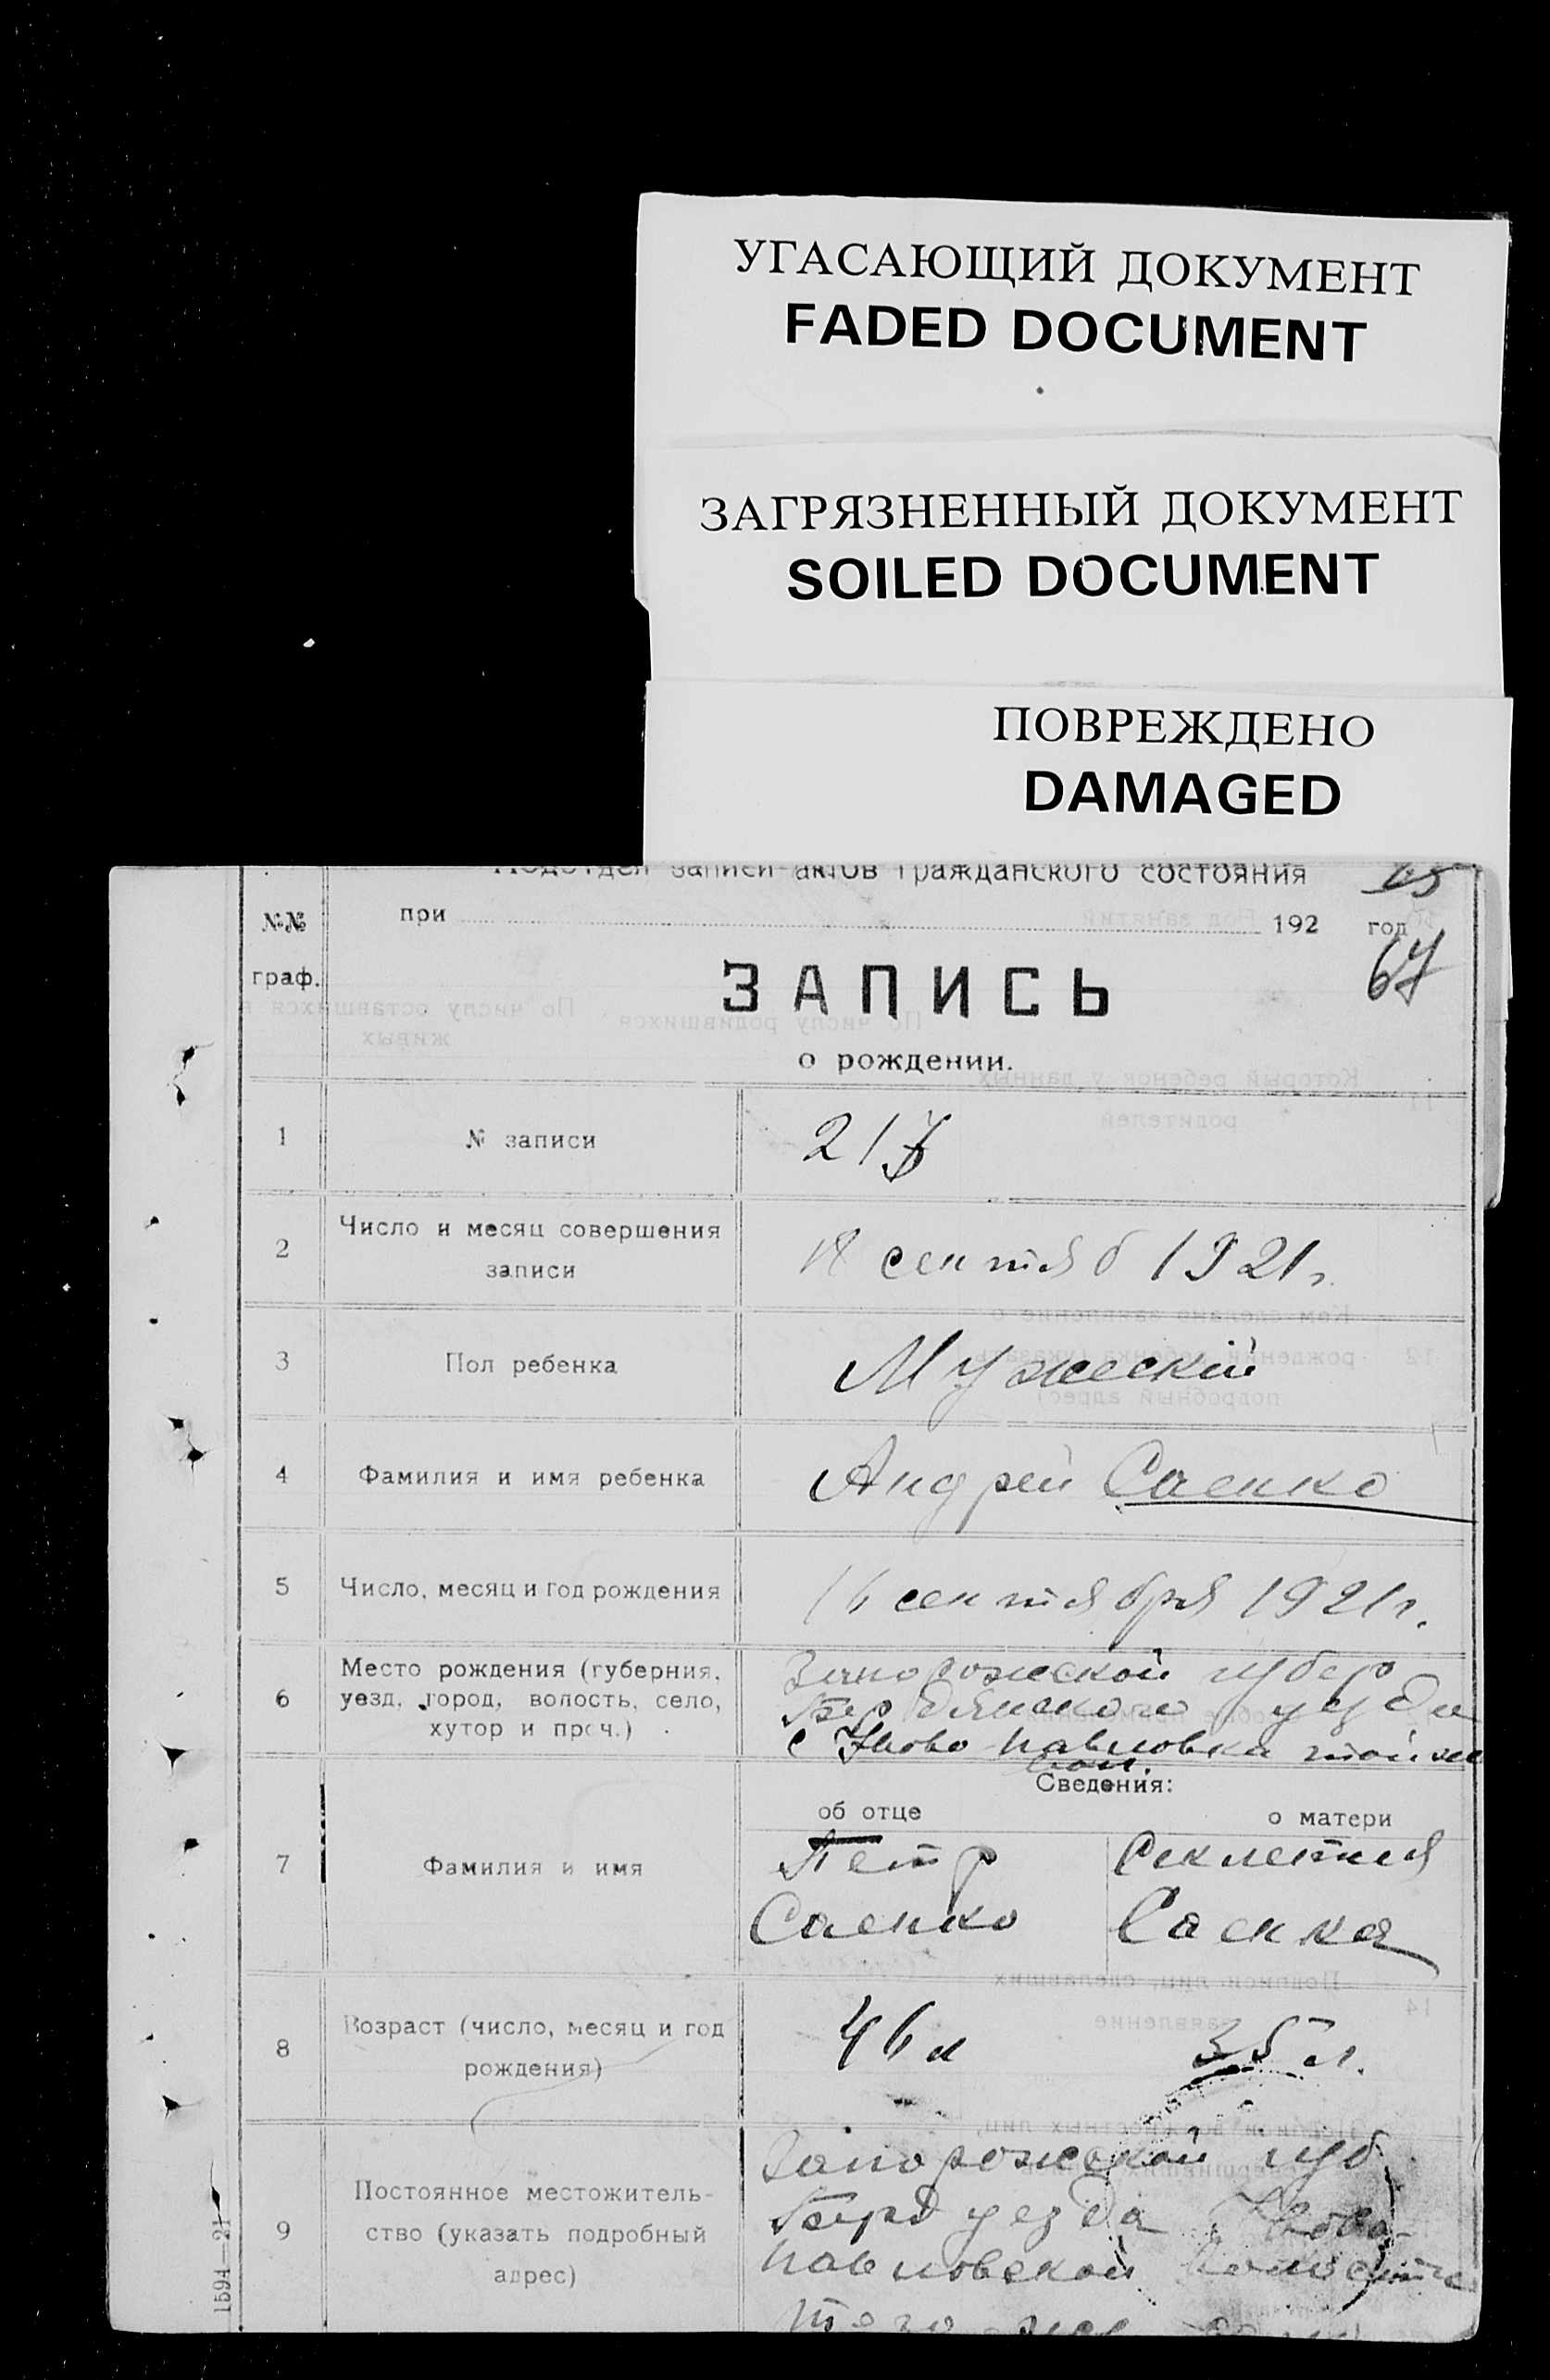 УГАСАЮЩИЙ ДОКУМЕНТ
FADED DOCUMENT
ЗАГРЯЗНЕННЫЙ ДОКУМЕНТ
SOILED DOCUMENT
ПОВРЕЖДЕНО
DAMAGED
Подотдел записи актов гражданского состояния
при 192 год
№№
граф.
67
ЗАПИСЬ
о рождении.
1 № записи 217
2 Число и месяц совершения
записи
18 сентяб 1921 г.
3 Пол ребенка Мужеский
4 Фамилия и имя ребенка Андрей Саенко
5 Число, месяц и год рождения 16 сентября 1921 г.
6 Место рождения (губерния,
уезд, город, волость, село,
хутор и проч.)
Запорожской губер
Бердянского уезда
с Ново Павловка той же
вол.
Сведения:
об отце о матери
7 Фамилия и имя
Петр
Саенко
Секлетия
Саенко
8 Возраст (число, месяц и год
рождения)
46 л 35 л.
9 Постоянное местожитель-
ство (указать подробный
адрес)
Запорожской губ
Берд уезда Ново
Павловской волости
того же
1594—21